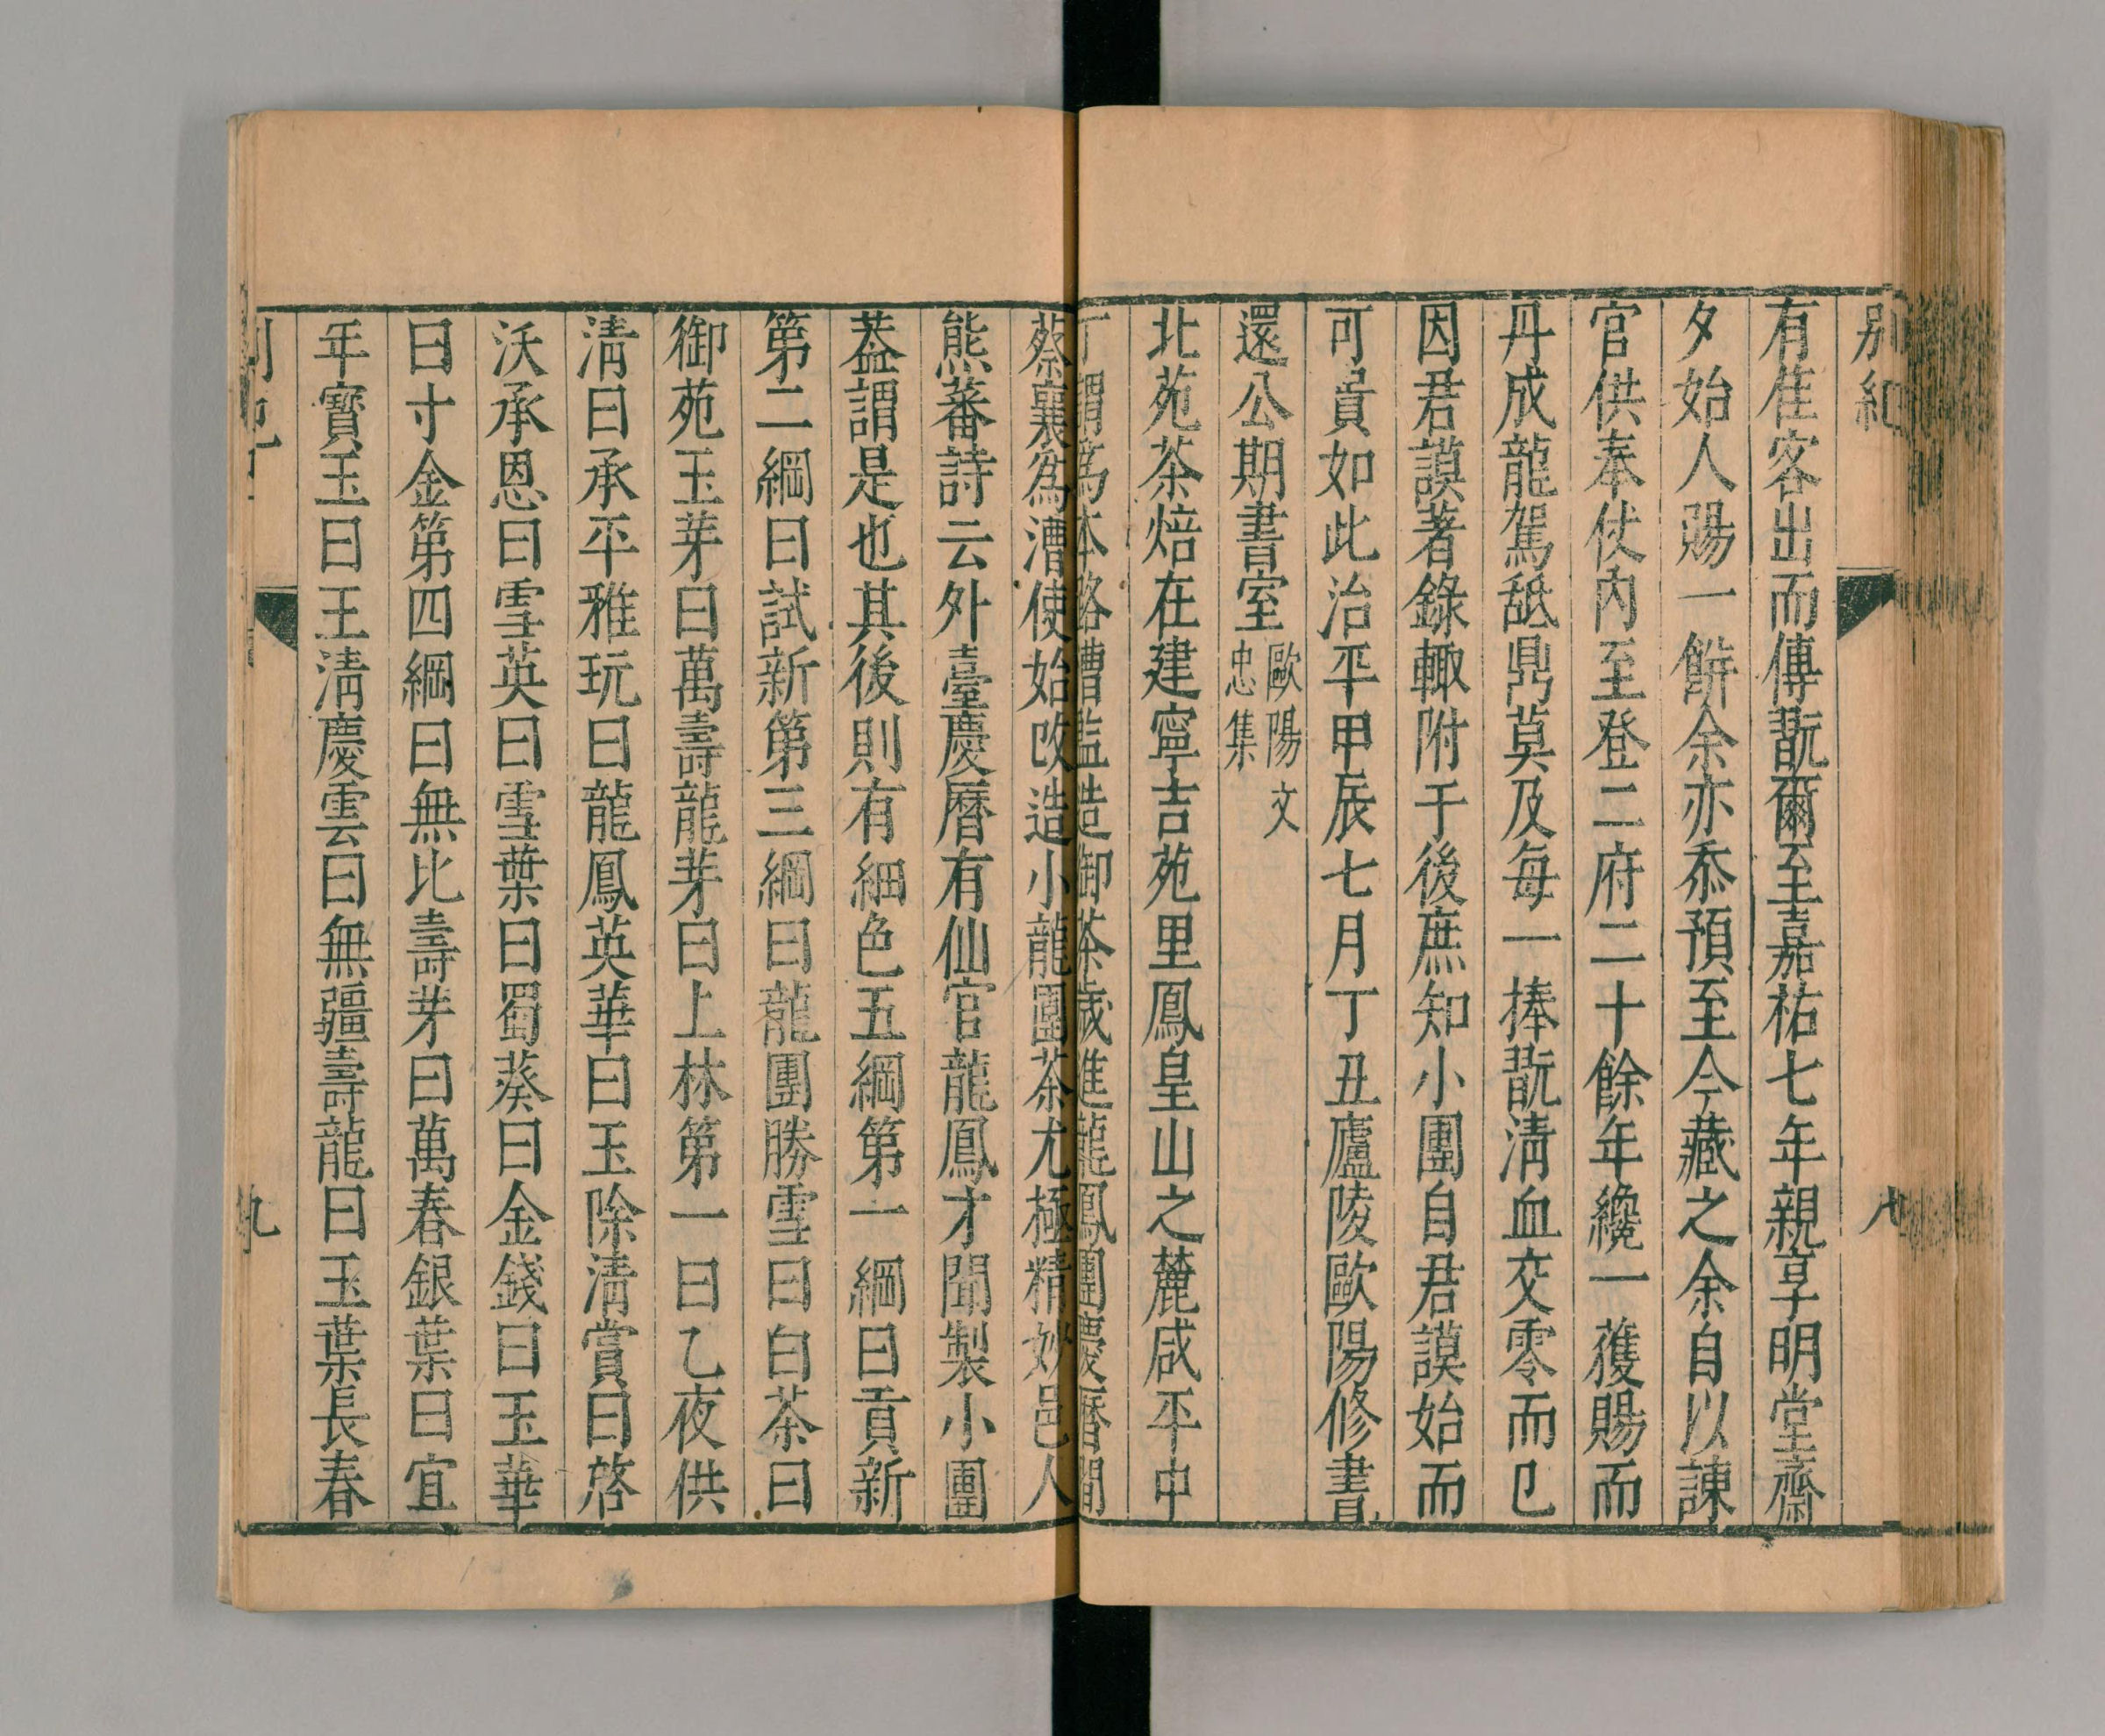 別紀
八
有佳客出而傳翫爾至嘉祐七年親享明堂齋
夕始人賜一餅余亦忝預至今藏之余自以諫
官供奉仗內至登二府二十餘年纔一獲賜而
丹成龍駕舐鼎莫及每一捧翫清血交零而已
因君謨著錄輙附于後庶知小團自君謨始而
可貴如此治平甲辰七月丁丑廬陵歐陽修書
還公期書室歐陽文
忠集
北苑茶焙在建寧吉苑里鳳皇山之麓咸平中
丁謂爲本路漕監造御茶歲進龍鳳團慶曆間
蔡襄爲漕使始改造小龍團茶尤極精妙邑人
熊蕃詩云外臺慶曆有仙官龍鳳才聞製小團
葢謂是也其後則有細色五綱第一綱曰貢新
第二綱曰試新第三綱曰龍團勝雪曰白茶曰
御苑玉芽曰萬壽龍芽曰上林第一曰乙夜供
清曰承平雅玩曰龍鳳英華曰玉除清賞曰啓
沃承恩曰雪英曰雪葉曰蜀葵曰金錢曰玉華
曰寸金第四綱曰無比壽芽曰萬春銀葉曰宜
年寶玉曰王清慶雲曰無疆壽龍曰玉葉長春
九